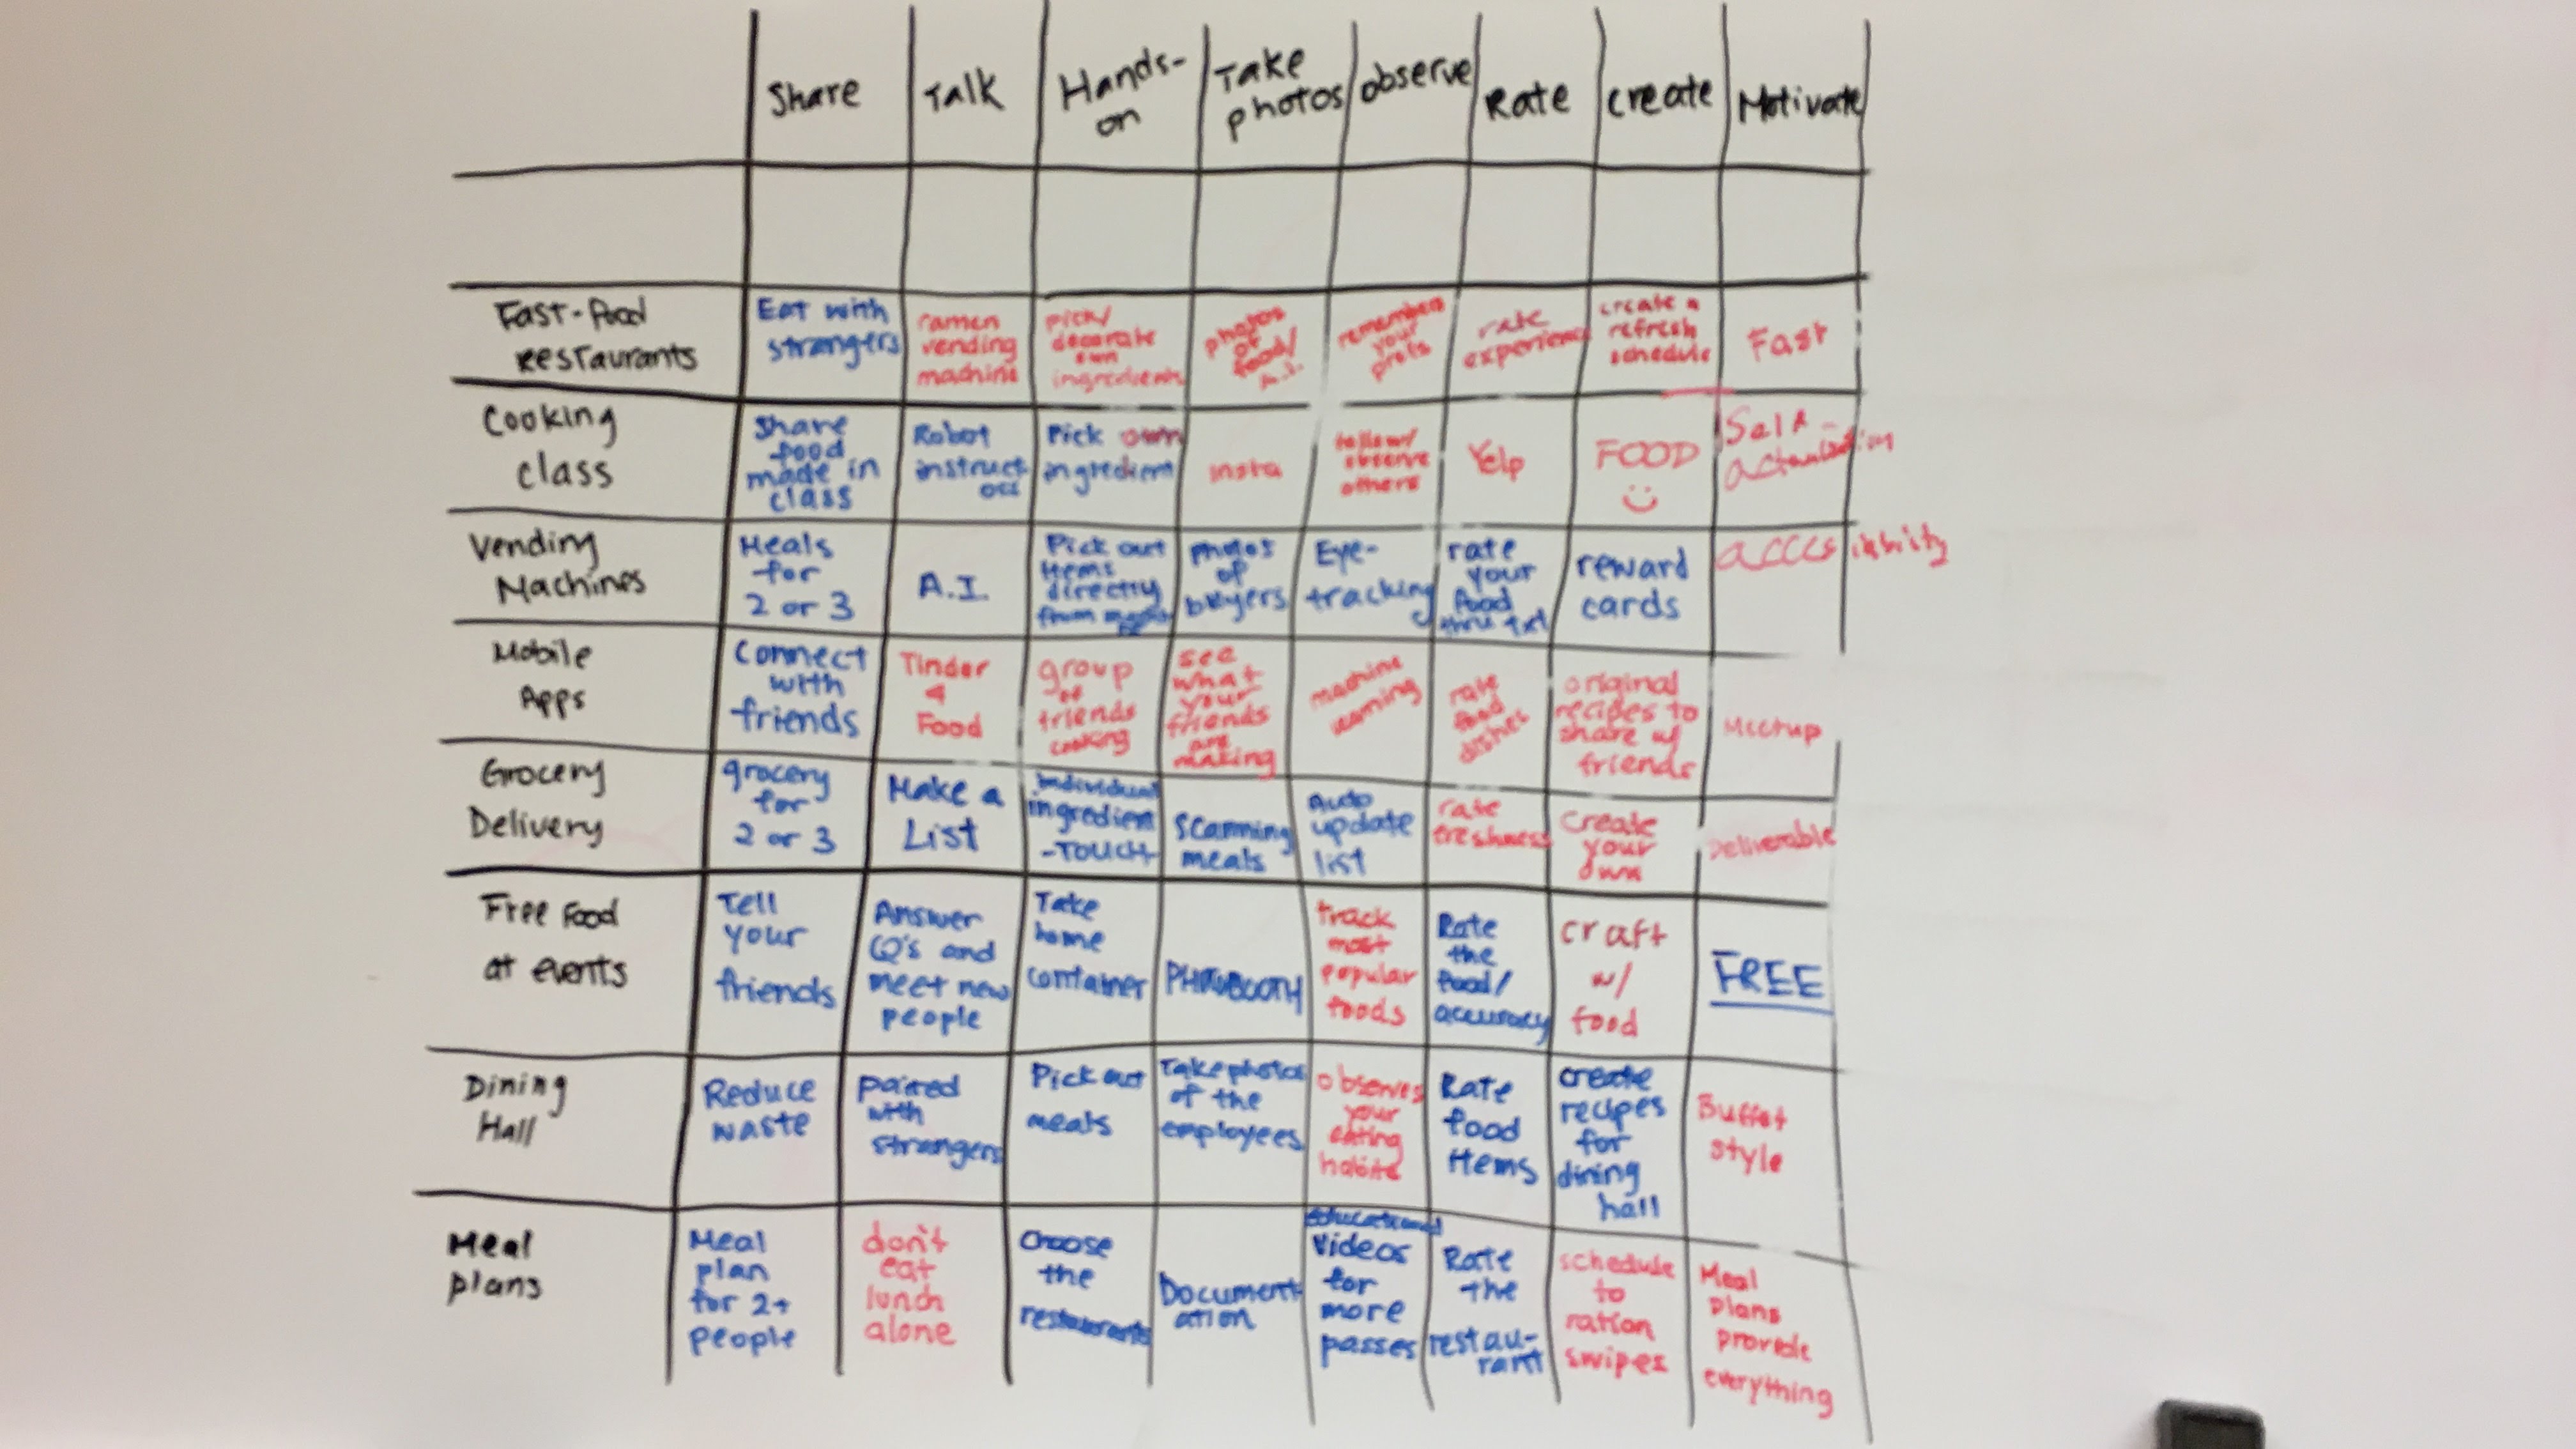 Share
Talk
Hands-
on
Take
photos
observe
Rate
create
Motivate
Fast-food
Restaurants
Eat with
strangers
ramen
vending
machine
pick/
decorate
own
ingredients
photos
of
food/
remembers
your
prefs
rate
experience
create a
refresh
schedule
Fast
Cooking
class
Share
food
made in
class
Robot
instruct
ors
Pick own
ingredient
insta
follow/
observe
others
Yelp
FOOD
Self-
actualization
Vending
Machines
Meals
for
2 or 3
A.I.
Pick out
items
directly
from
photos
of
buyers
Eye-
tracking
rate
your
food
thru txt
reward
cards
Mobile
Apps
Connect
with
friends
Tinder
4
Food
group
of
friends
cooking
see
what
your
friends
are
making
machine
learning
rate
food
dishes
original
recipes to
share w/
friends
Meetup
Grocery
Delivery
grocery
for
2 or 3
Make a
List
individual
ingredient
-TOUCH
scanning
meals
Auto
update
list
rate
freshness
create
your
own
Deliverable
Free Food
at events
Tell
your
friends
Answer
Q's and
meet new
people
Take
home
container
PHOTOBOOTH
track
most
popular
foods
Rate
the
food/
accuracy
craft
w/
food
FREE
Dining
Hall
Reduce
waste
paired
with
strangers
Pick out
meals
Take photos
of the
employees
observes
your
eating
habits
Rate
food
items
create
recipes
for
dining
hall
Buffet
style
Meal
plans
Meal
plan
for 2+
people
don't
eat
lunch
alone
Choose
the
restaurants
Document-
ation
educational
videos
for
more
passes
Rate
the
restau-
rant
schedule
to
ration
swipes
Meal
plans
provide
everything